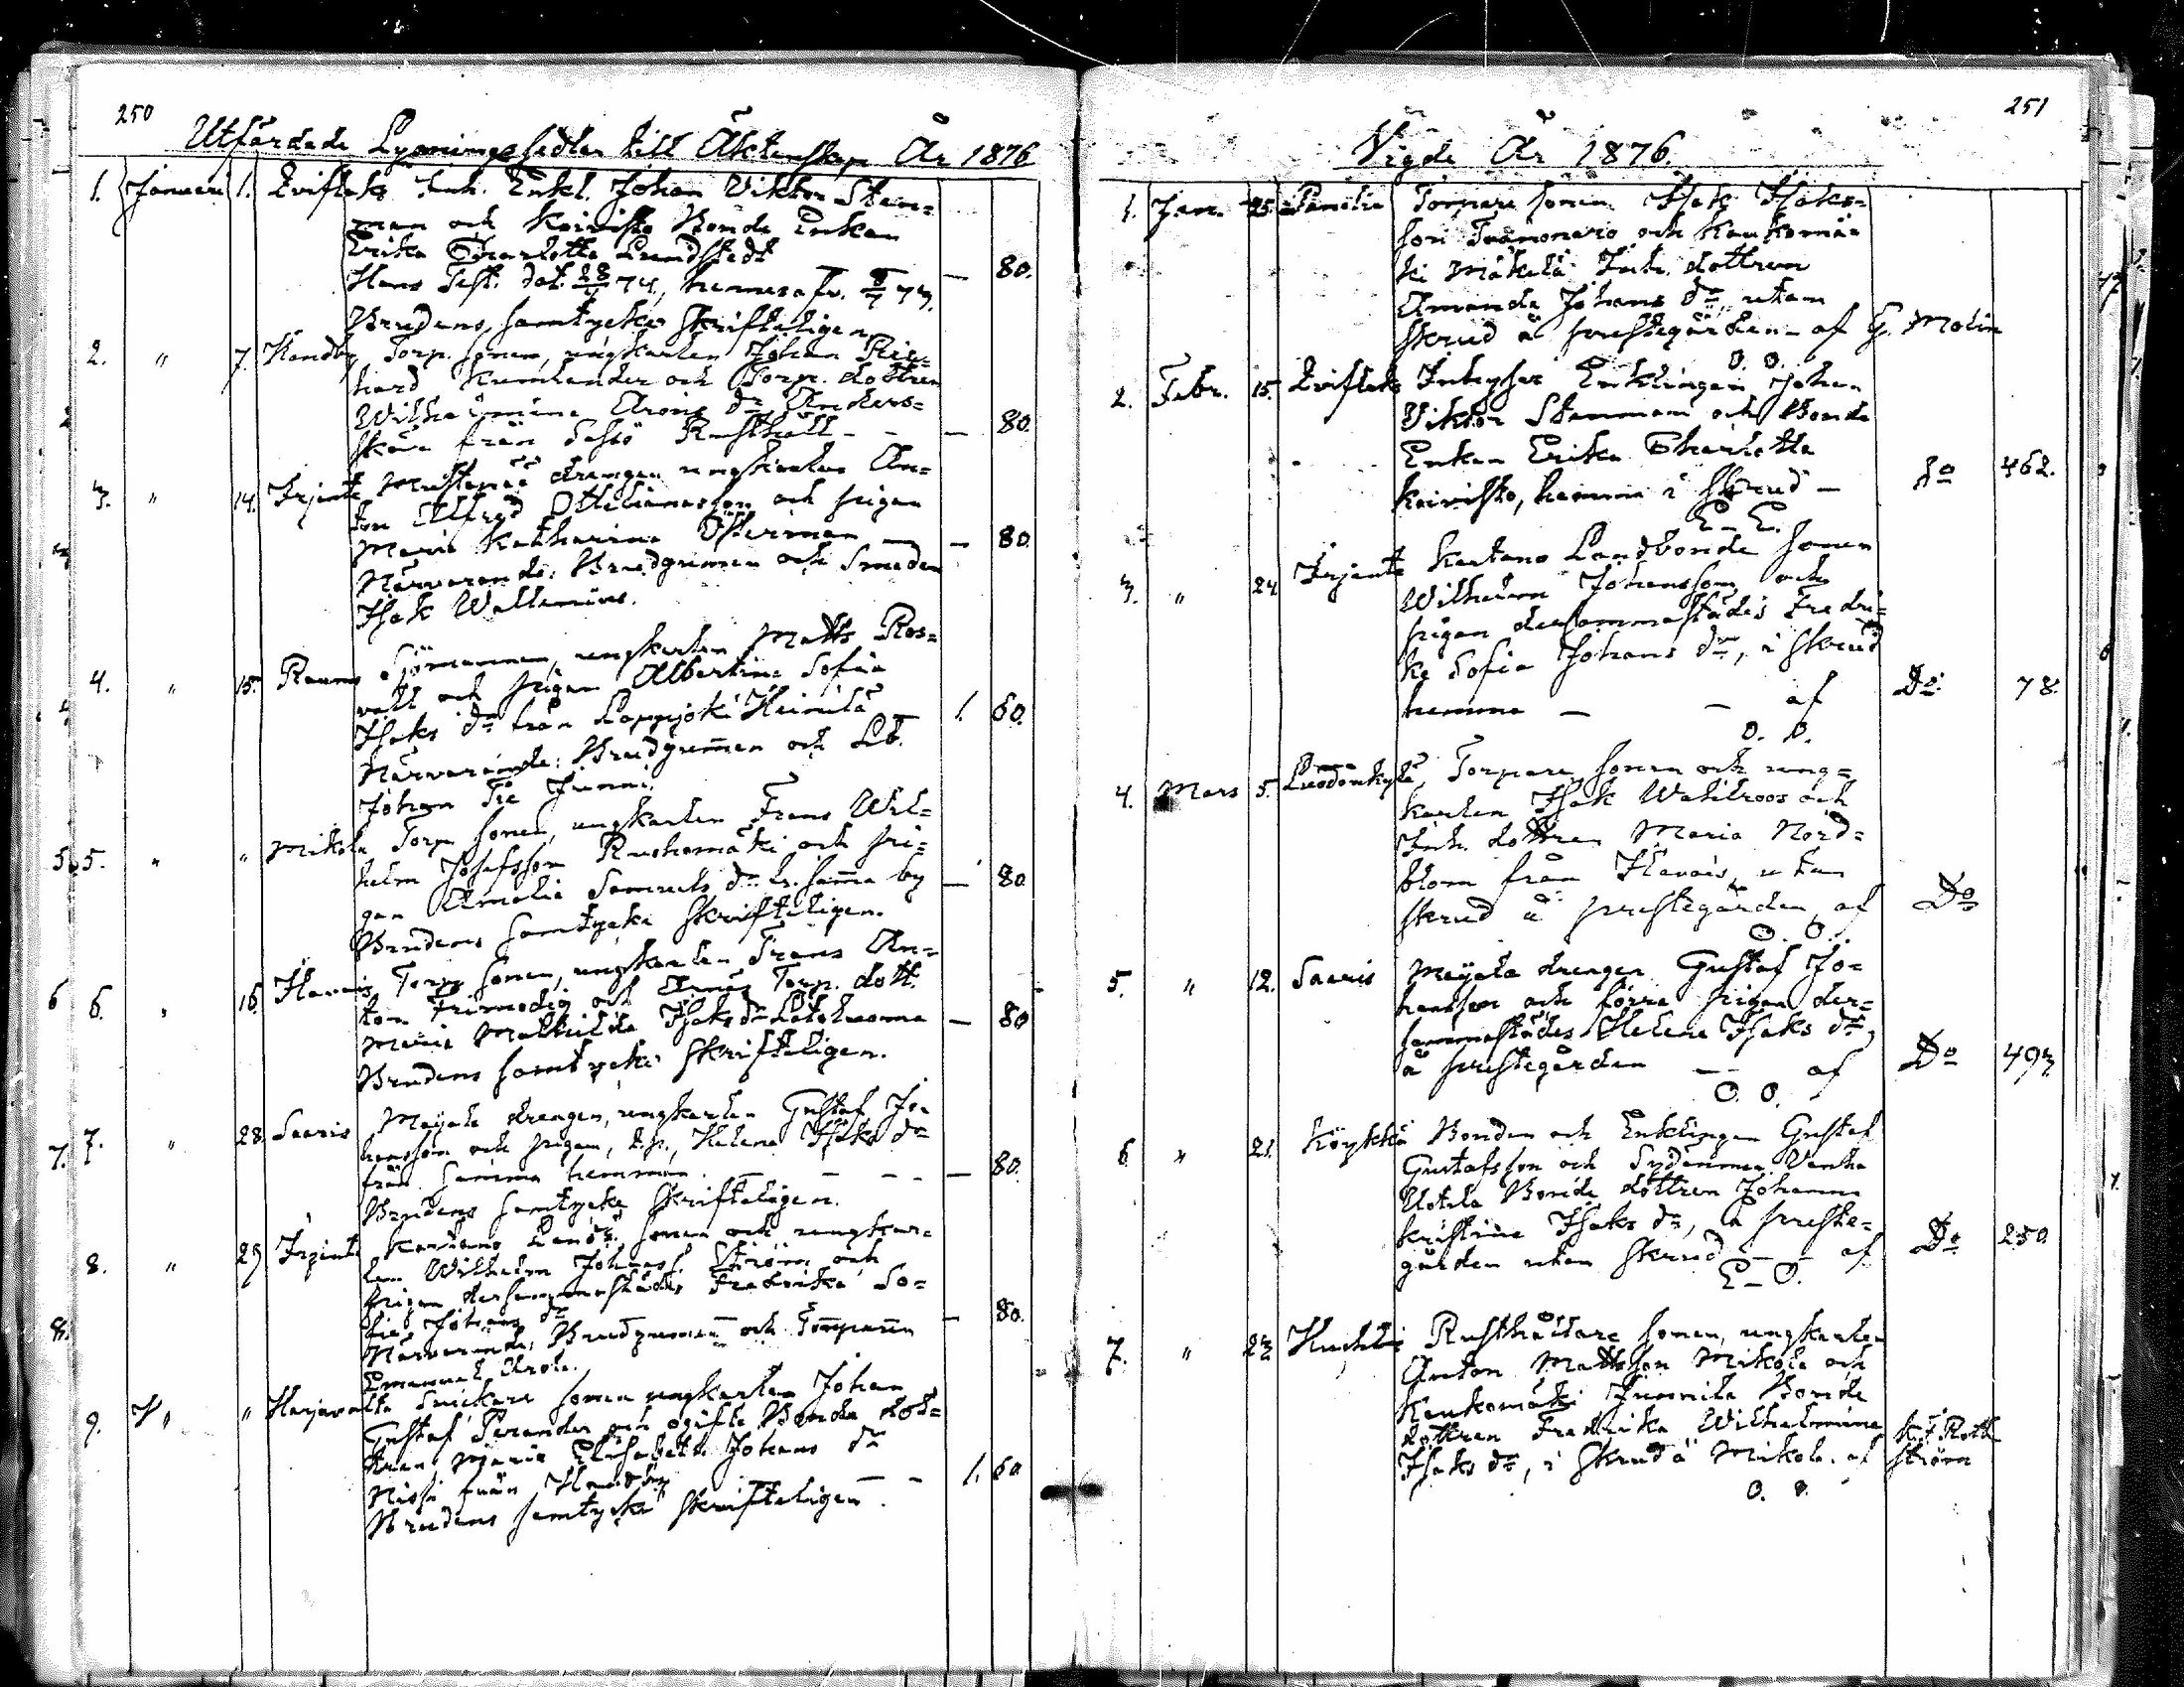 250
Utfärdade Lysningssedlar till Äktenskap År 1876
1. Januari 1. Eviflaks Inh. Enkl. Johan Viktor Sten=
man och Koivisto Bonde Enkan
Erika Charlotta Lundstedt — — 80.
Hans Test. dat. 28/ 74, hennes af. 8/7 73.
Brudens samtycke skrifteligen
2. " 7. Handby Torp. sonen, ungkarlen Johan Ric=
hard Kumlander och Torp. dottren
Wilhelmina Arons dr Anders=
skär från Sastö Rusthåll - - — 80.
3. " 14. Irjante Mustapää drengen ungkarlen An=
ton Alfred Ottelianasson och pigan
Maria Katharina Österman — — 80.
Närvarande: Brudgumen och Smeden
Isak Wallenius.
4. " 15. Raumo Sjömannen, ungkarlen Matts Ros=
vall och pigan Albertina Sofia
Isaks dr från Lappijoki Heinilä 1. 60.
Närvarande: Brudgumen och Lb.
Johan Tie Junni.
5. 5. " " Mikola Torp sonen, ungkarlen Frans Wil=
helm Josefsson Ruohomäki och pi=
gan Amalia Samuels dr fr. samma by — 80
Brudens samtycke skrifteligen.
6 6. " 16. Hannis Torp sonen, ungkarlen Frans An=
ton Frimodig och Torp. dott.
Maria Mathilda Isaks dr Latoluoma — 80
Brudens samtycke skrifteligen.
7. 7. " 28. Saaris Mäyälä drengen, ungkarlen Gustaf Jo=
hansson och pigan, d.p., Helena Isaks dr
från samma hemman. — — - - — 80.
Brudens samtycke skrifteligen.
8. " 29 Irjante Kartano Landb. sonen och ungkar=
len Wilhelm Johanss. Ström och
pigan dersammastädes Fredrika So=
fia Johans dr — 80.
8. Närvarande, Brudgumen och Torparen
Emanuel Arola.
9. " " Harjavalta Snickare sonen ungkarlen Johan
Gustaf Serander och ogifta Bonde dot=
tren Maria Elisabeth Johans dr
Nissi från Handby — - 1. 60
Brudens samtycke skrifteligen.
251
Vigde År 1876.
1. Jan. 25. Panelia Torpare sonen Isak Isaks=
son Tuomonoro och Kaukomä=
ki Mäkelä Inh. dottren
Amanda Johans dr, utan
skrud å prestegården - af G. Molin
O. O.
2. Febr. 15. Eviflaks Inhyses Enklingen Johan
Viktor Stenman och Bonde
Enkan Erika Charlotta
Koivisto, hemma i skrud - Do 462.
E - E.
3. " 24 Irjante Kartano Landbonde sonen
Wilhelm Johansson och
pigan dersammastädes Fredri=
ka Sofia Johans dr, i skrud
hemma — — af Do. 78.
O. O.
4. Mars 5. Luodonkylä, Torpare sonen och ung=
karlen Isak Wahlroos och
Inh. dottren Maria Nord=
blom från Hannis, utan
skrud å prestegården af Do
O. O.
5. " 12. Saaris Mäyälä drengen Gustaf Jo=
hansson och förra pigan der=
sammastädes Helena Isaks dr,
å prestegården — — af Do 493
O. O.
6 " 21. Köykkä Bonden och Enklingen Gustaf
Gustafsson och Sydänmaa Vanha
Uotila Bonde dottren Johanna
Kristina Isaks dr, å preste=
gården utan skrud - - af Do 250
E - O.
7. " 23 Huchti Rusthållare sonen, ungkarlen
Anton Mattsson Mikola och
Kaukomäki Junnila Bonde
dottren Fredrika Wilhelmina
Isaks dr, i skrud å Mikola. af K. F. Roth
ström
O. O.